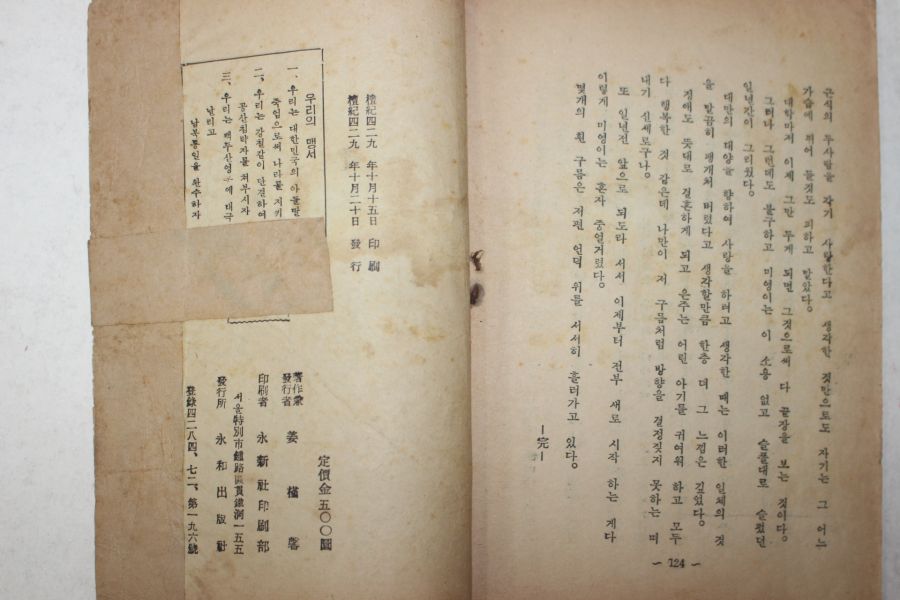 근식의 두사람을 각기 사랑한다고 생각한 것만으로도 자기는 그 어느
가슴에 적어 들것도 피하고 말았다。
대학마저 이제 그만 두게 되면 그것으로써 다 끝장을 보는 것이다。
그러나 그런데도 불구하고 미영이는 이 소용 없고 슬픔대로 슬펐던
일년간이 그리웠다。
대만의 태양을 향하여 사랑을 하려고 생각한 때는 이러한 일체의 것
을 말끔히 팽개쳐 버렸다고 생각할만큼 한층 더 그 느낌은 깊었다。
정애도 뜻대로 결혼하게 되고 은주는 어린 아기를 귀여워 하고 모두
다 행복한 것 같은데 나만이 저 구름처럼 방향을 결정짓지 못하는 떠
내기 신세로구나。
또 일년전 앞으로 되도라 서서 이제부터 전부 새로 시작 하는 게다
이렇게 미영이는 혼자 중얼거렸다。
몇개의 흰 구름은 저편 언덕 위를 서서히 흘러가고 있다。
—完—
~ 124 ~
檀紀四二八九年十月十五日 印刷
檀紀四二八九年十月二十日 發行
우리의 맹서
一、우리는 대한민국의 아들딸
죽엄으로써 나라를 지키
二、우리는 강철같이 단결하여
공산침략자를 쳐부시자
三、우리는 백두산영봉에 태극
날리고
남북통일을 완수하자
定價金 五〇〇圜
著作兼
發行者 姜 槿 馨
印刷者 永新社印刷部
서울特別市鍾路區貫鐵洞一五五
發行所 永和出版社
登錄四二八四、七二、第一九六號